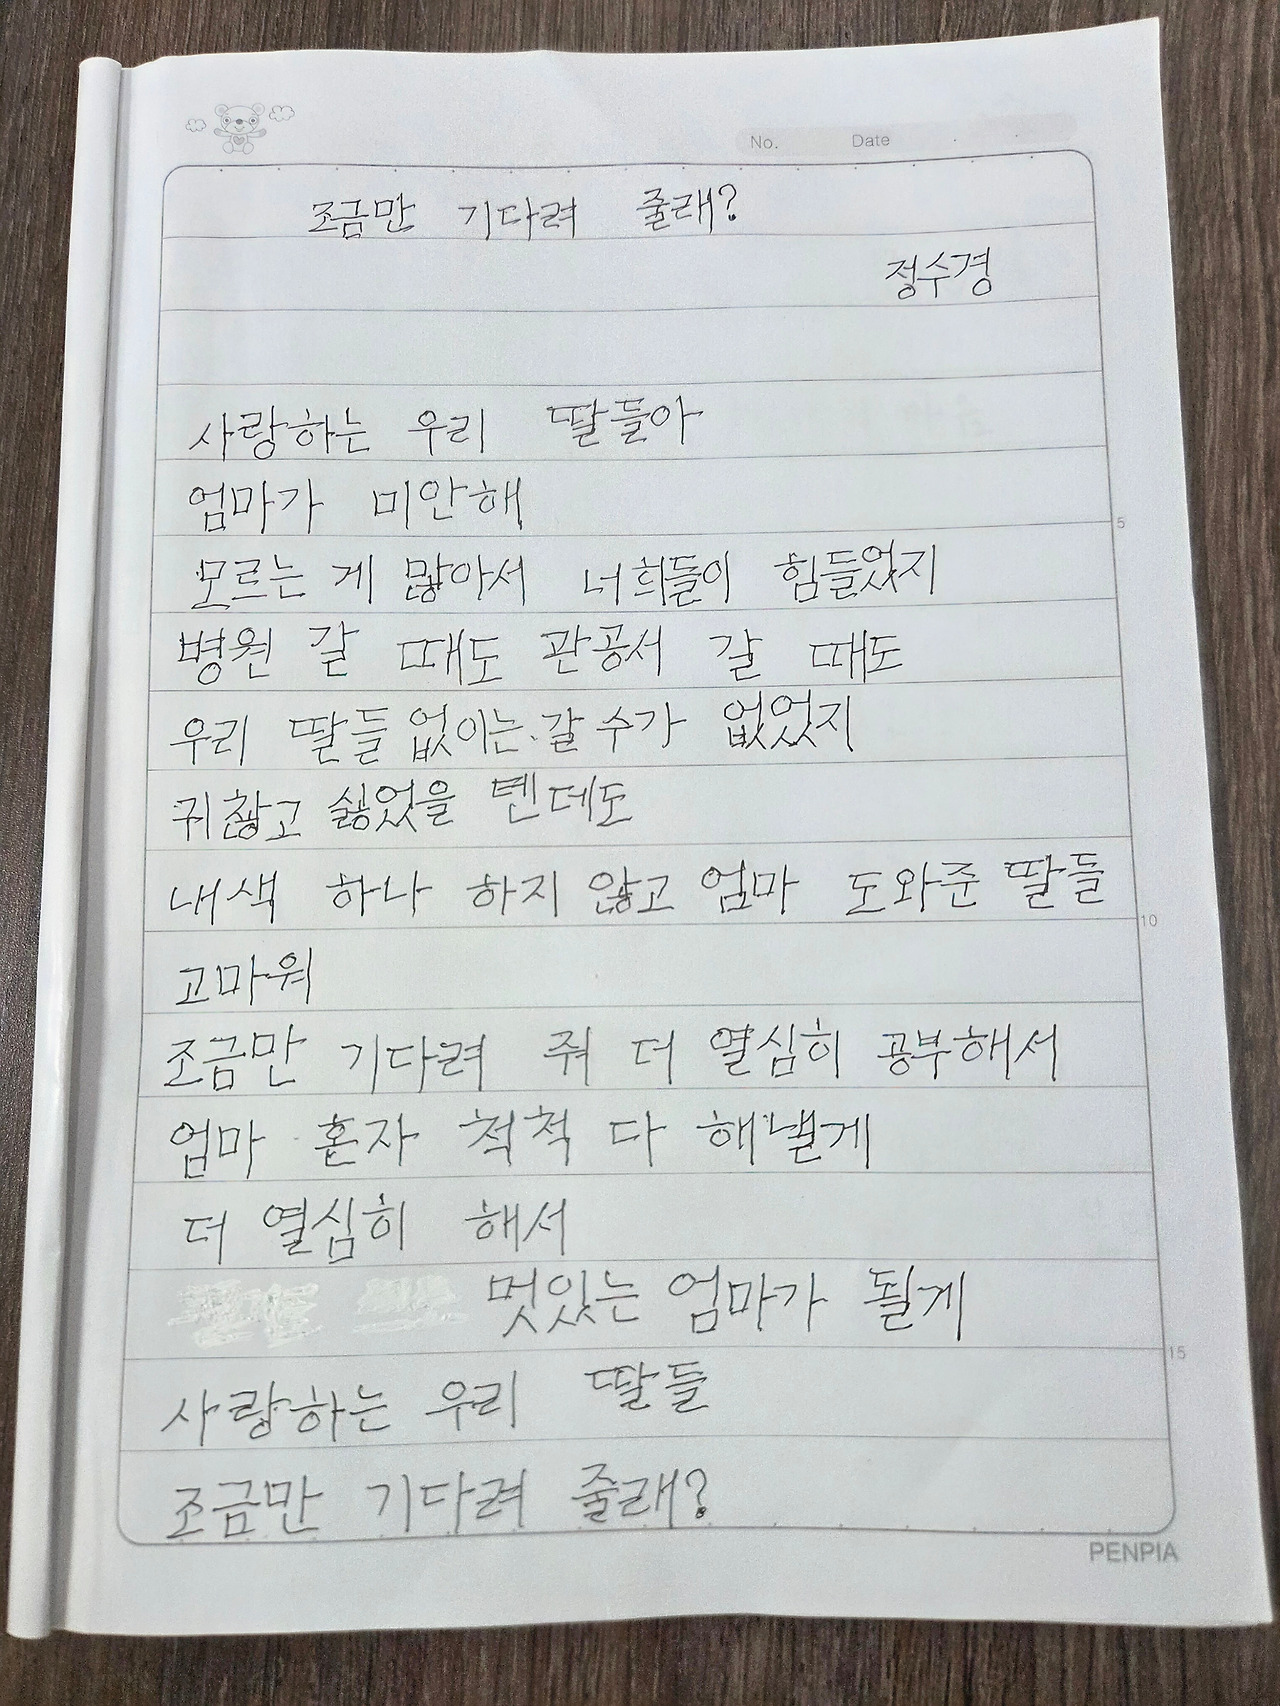 No. Date
조금만 기다려 줄래?
정수경
사랑하는 우리 딸들아
엄마가 미안해
모르는 게 많아서 너희들이 힘들었지
5
병원 갈 때도 관공서 갈 때도
우리 딸들 없이는 갈 수가 없었지
귀찮고 싫었을 텐데도
내색 하나 하지 않고 엄마 도와준 딸들
10
고마워
조금만 기다려 줘 더 열심히 공부해서
엄마 혼자 척척 다 해낼게
더 열심히 해서
멋있는 엄마가 될게
15
사랑하는 우리 딸들
조금만 기다려 줄래?
PENPIA